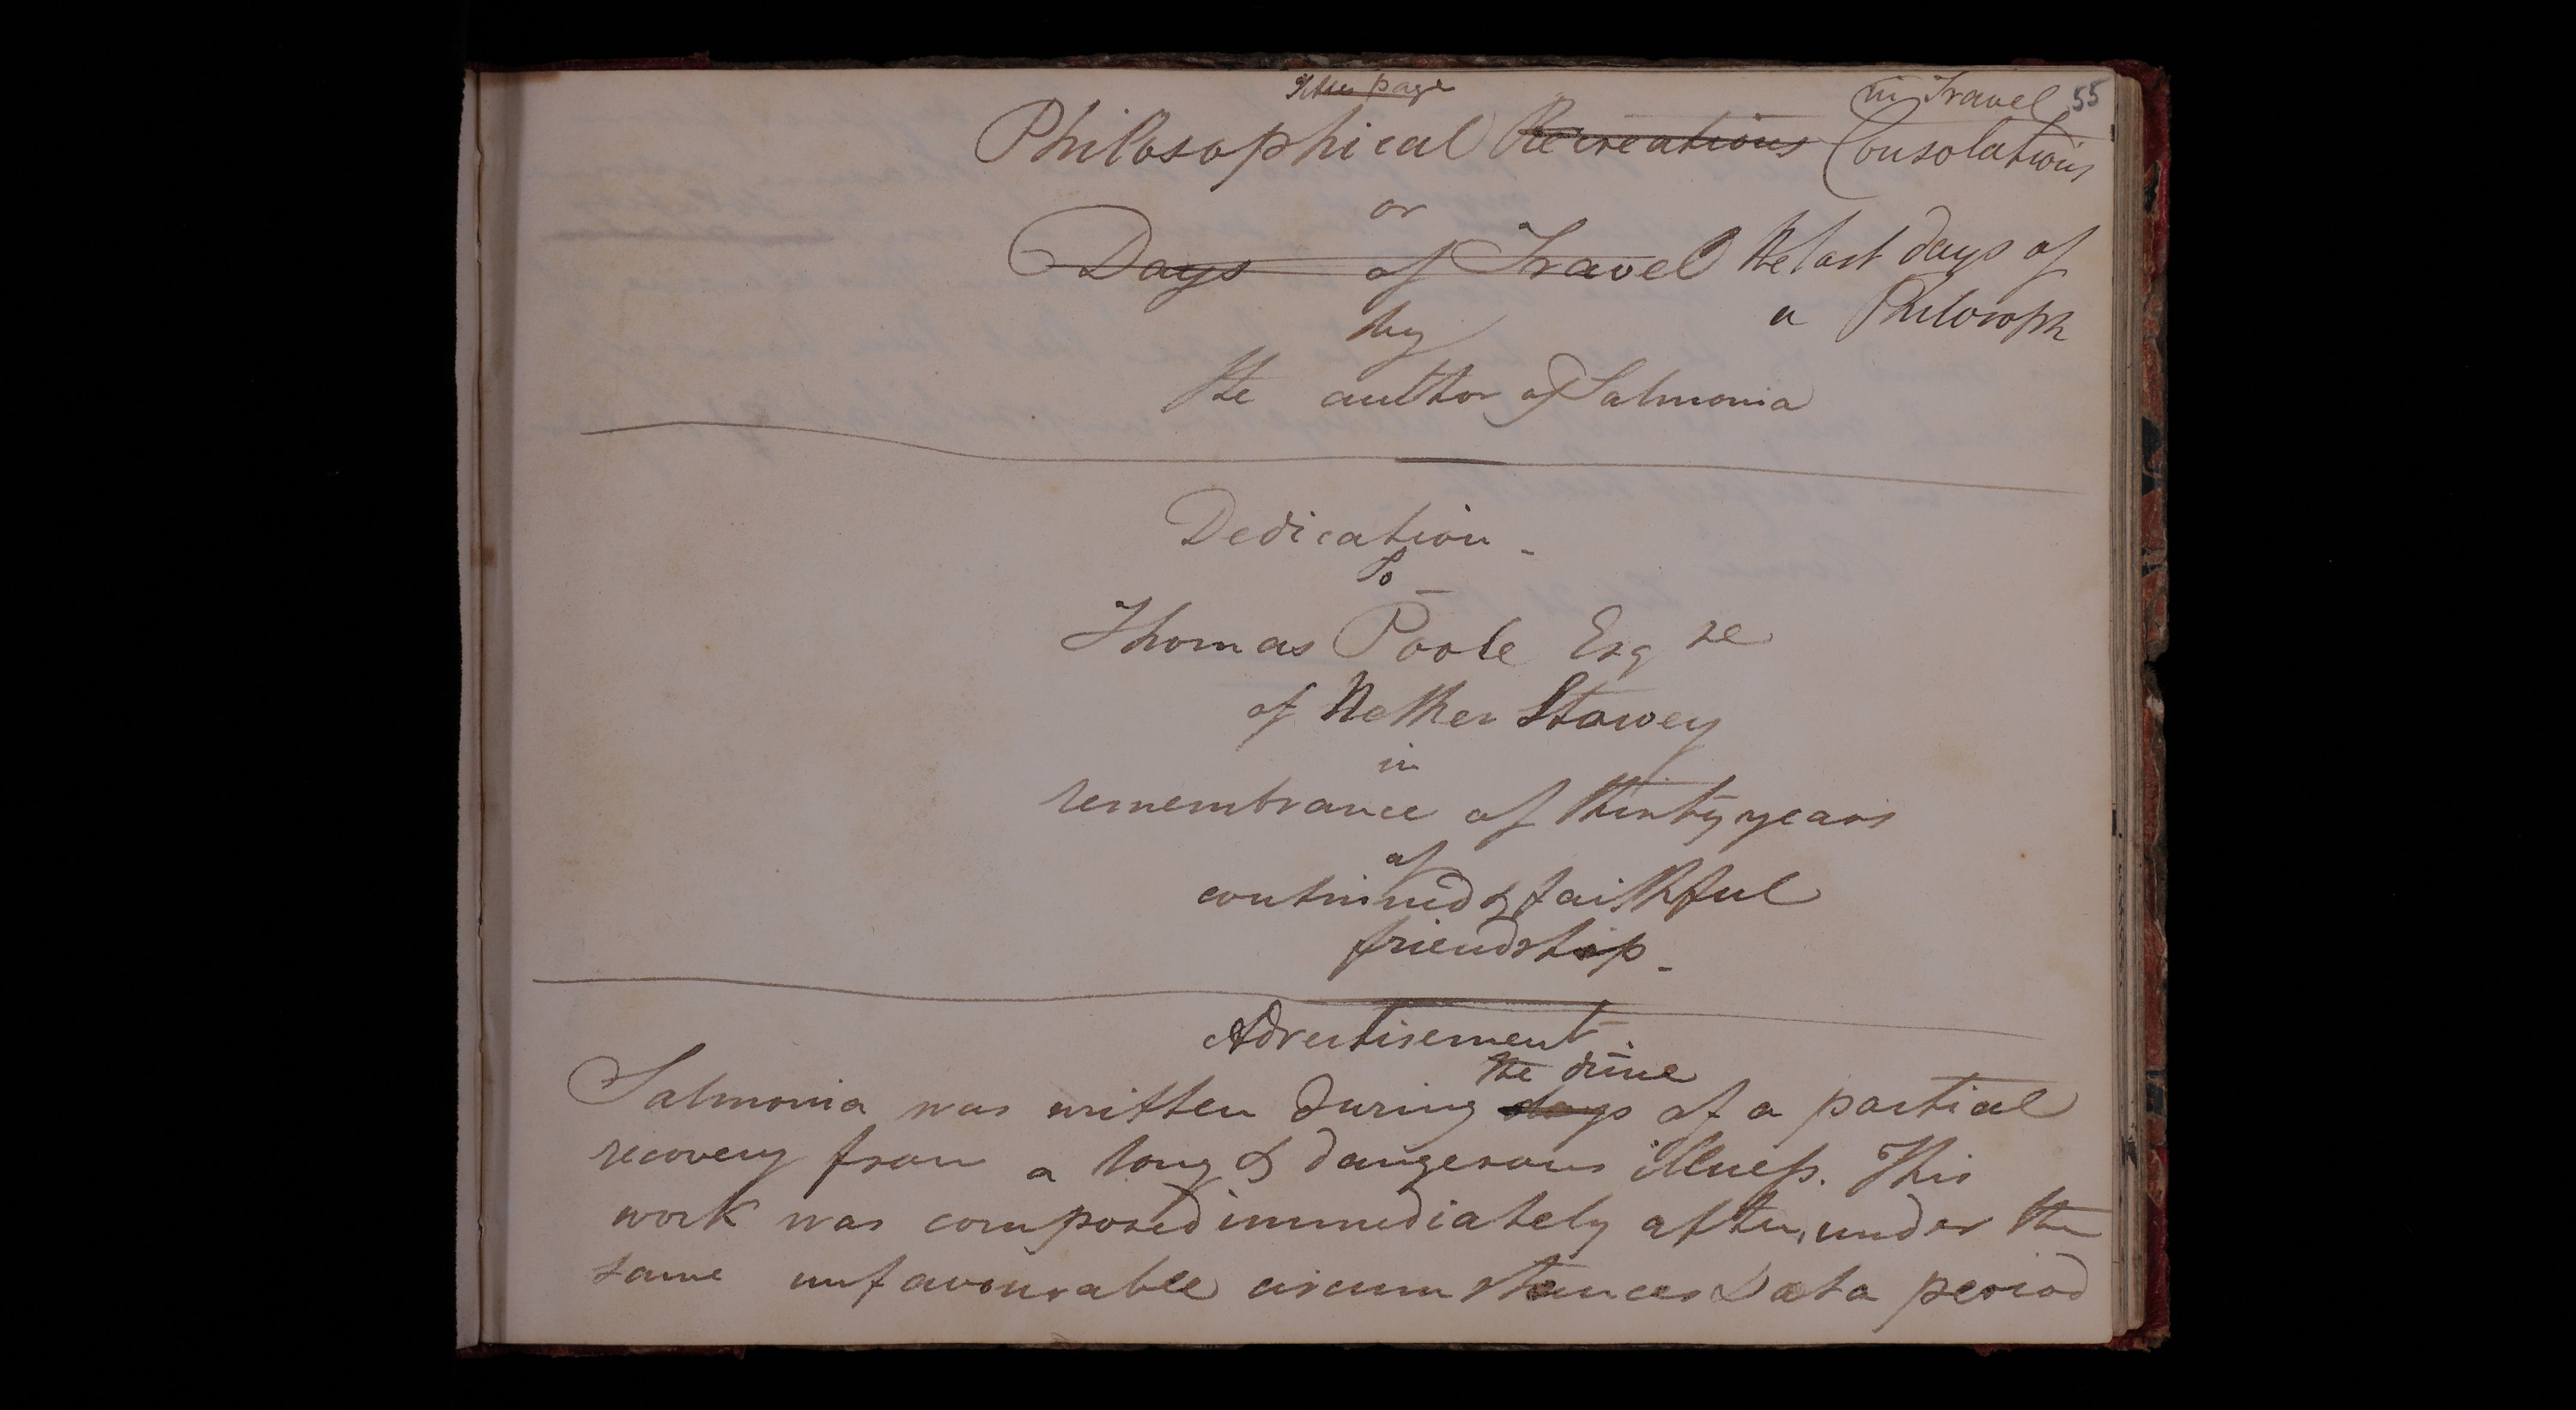 Title page
in Travel 55
Philosophical Recreations Consolations
or
Days of Travel the last days of
a Philosoph
by
the author of Salmonia
Dedication -
To
Thomas Poole Esqre
of Nether Stowey
in
remembrance of thirty years
of
continued & faithful
friendship -
Advertisement.
the time
Salmonia was written during days of a partial
recovery from a long & dangerous illness. This
work was composed immediately after, under the
same unfavourable circumstances & at a period